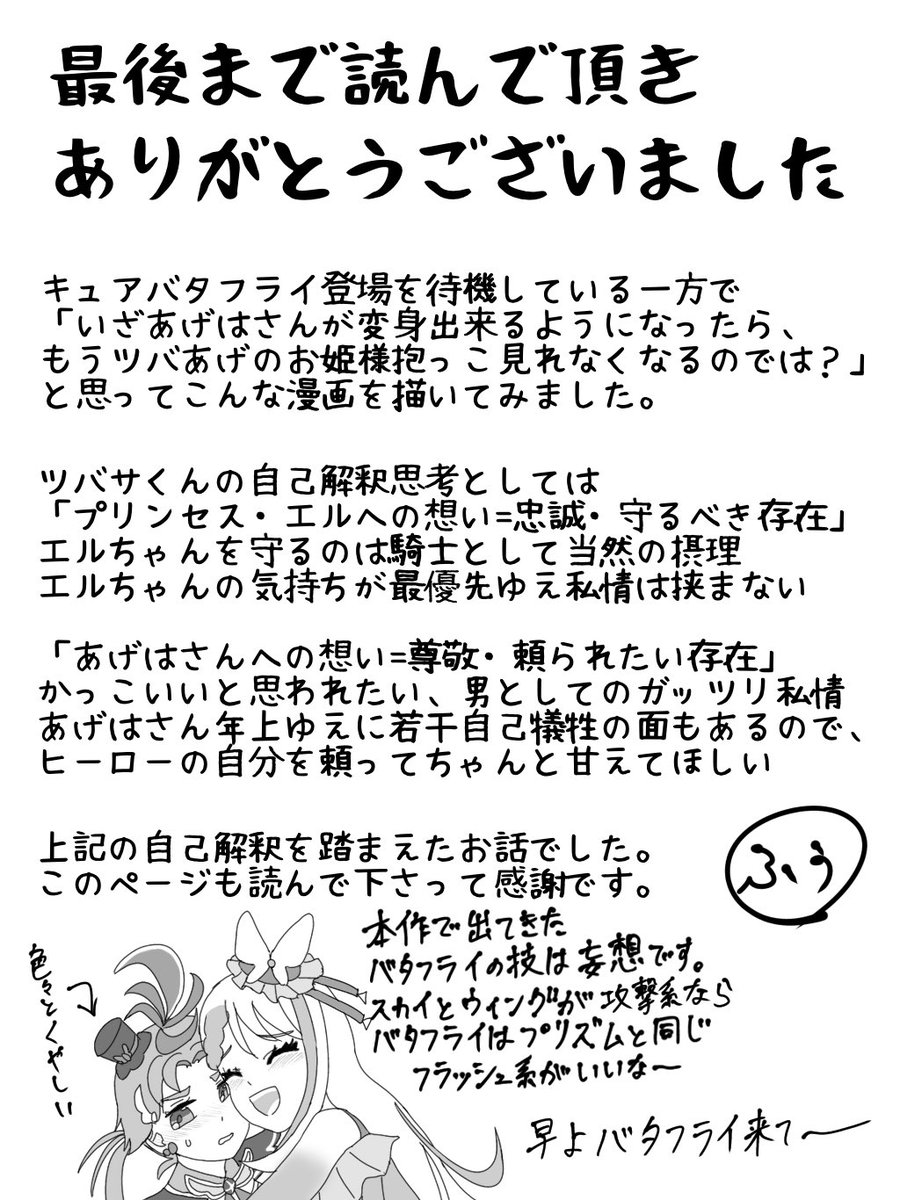 最後まで読んで頂き
ありがとうございました
キュアバタフライ登場を待機している一方で
「いざあげはさんが変身出来るようになったら、
もうツバあげのお姫様抱っこ見れなくなるのでは？」
と思ってこんな漫画を描いてみました。
ツバサくんの自己解釈思考としては
「プリンセス・エルへの想い=忠誠・守るべき存在」
エルちゃんを守るのは騎士として当然の摂理
エルちゃんの気持ちが最優先ゆえ私情は挟まない
「あげはさんへの想い=尊敬・頼られたい存在」
かっこいいと思われたい、男としてのガッツリ私情
あげはさん年上ゆえに若干自己犠牲の面もあるので、
ヒーローの自分を頼ってちゃんと甘えてほしい
上記の自己解釈を踏まえたお話でした。
このページも読んで下さって感謝です。
ふぅ
本作で出てきた
バタフライの技は妄想です。
スカイとウィングが攻撃系なら
バタフライはプリズムと同じ
フラッシュ系がいいな〜
早よバタフライ来て〜
色々とくやしい